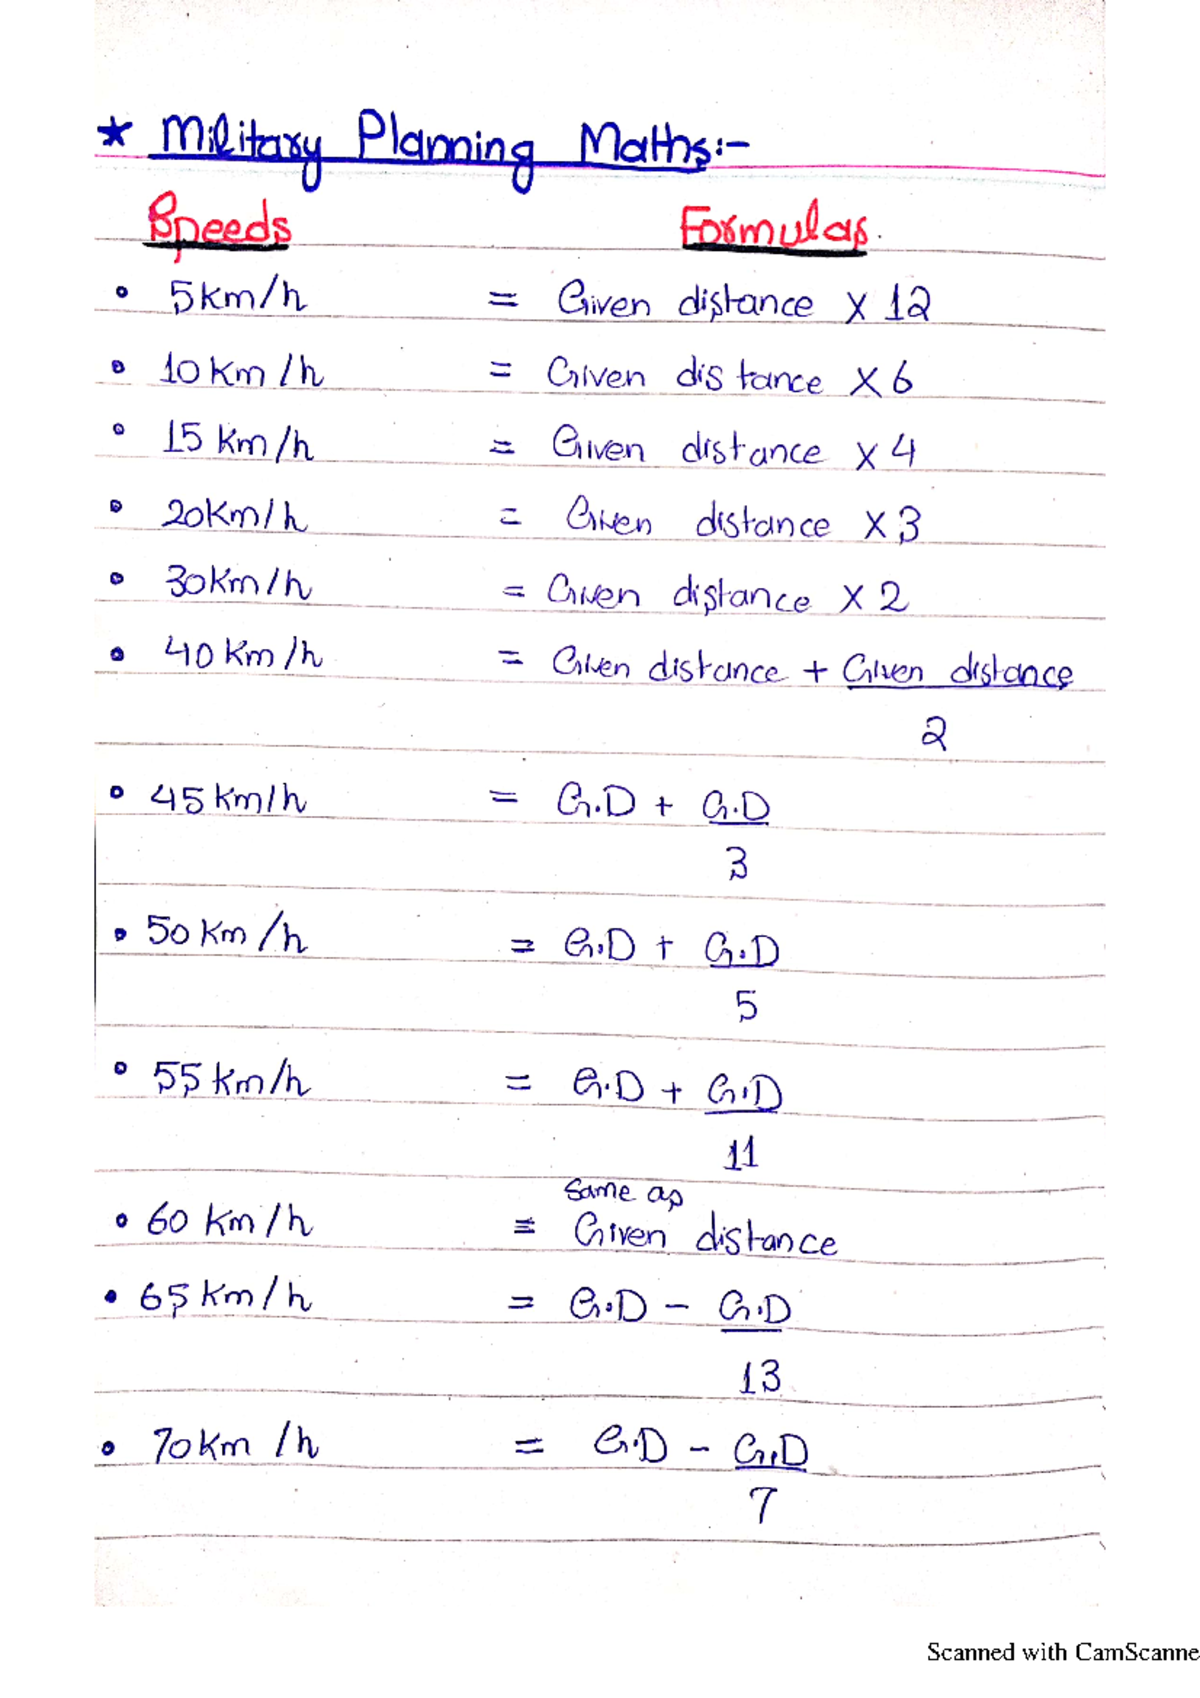 ★ Military Planning Maths:-
Speeds Formulas.
• 5km/h = Given distance x 12
• 10 Km/h = Given distance x 6
• 15 Km/h = Given distance x 4
• 20Km/h = Given distance x 3
• 30Km/h = Given distance x 2
• 40 Km/h = Given distance + Given distance
2
• 45 Km/h = G.D + G.D
3
• 50 Km/h = G.D + G.D
5
• 55 Km/h = G.D + G.D
11
Same as
• 60 Km/h = Given distance
• 65 Km/h = G.D - G.D
13
• 70Km/h = G.D - G.D
7
Scanned with CamScanne